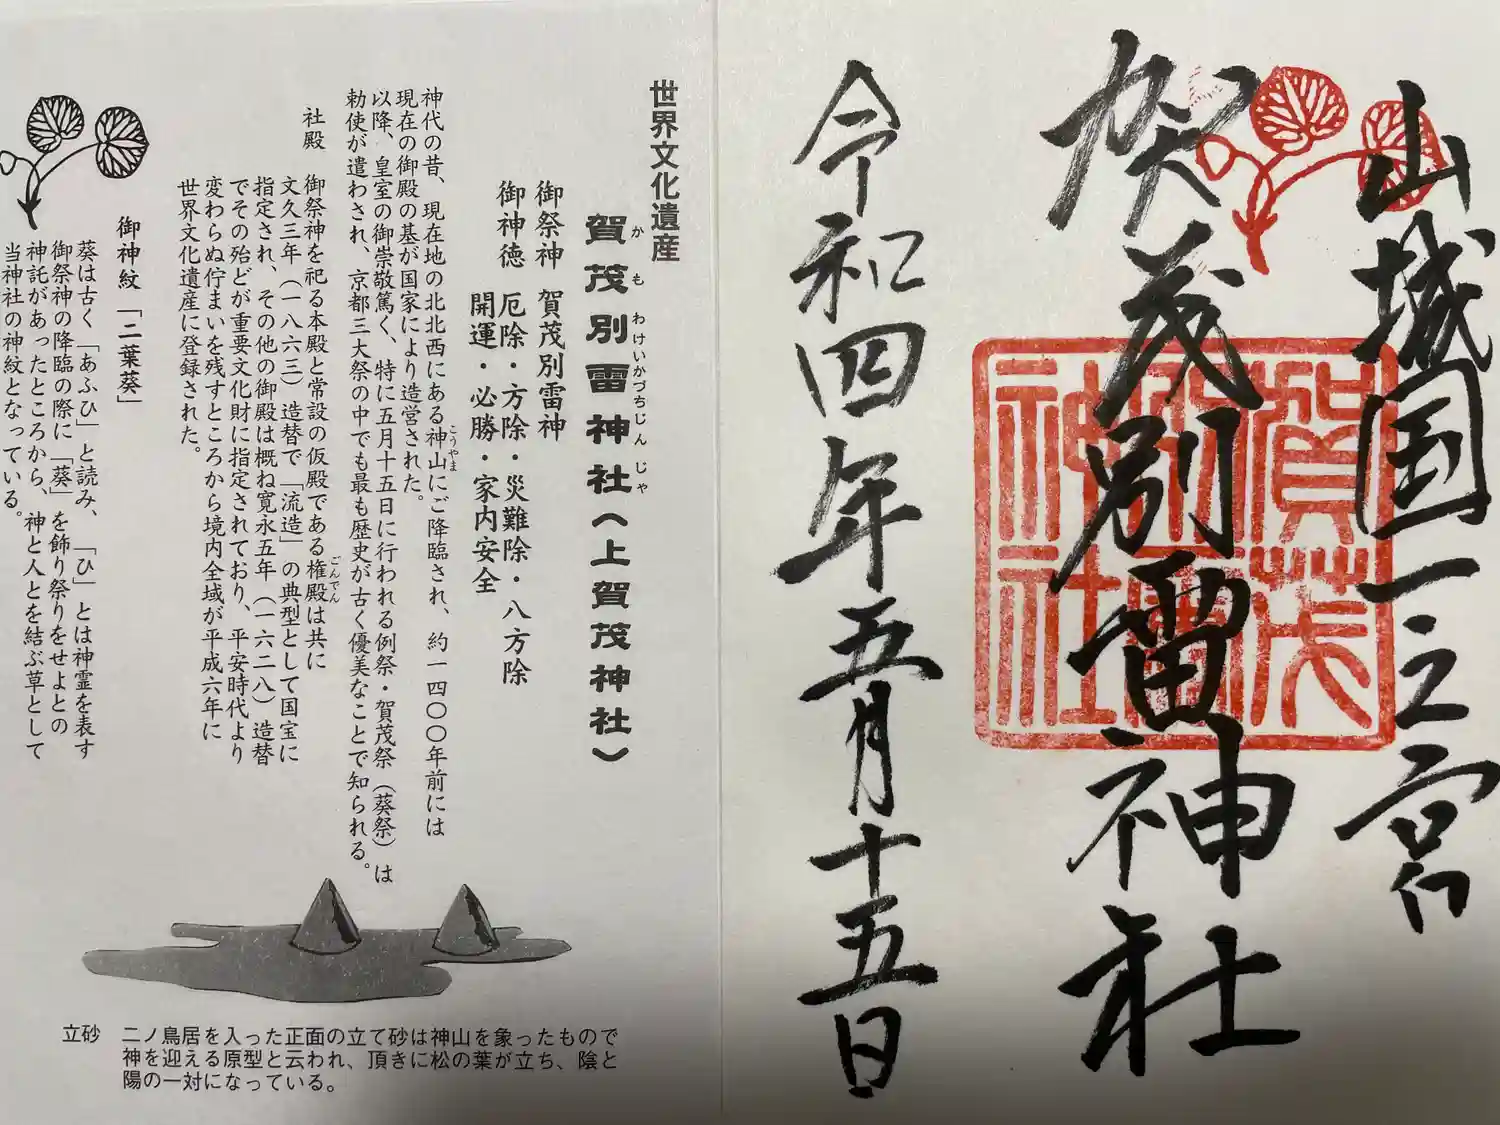 山城国一之宮
賀茂別雷神社
賀茂
別雷
神社
令和四年五月十五日
世界文化遺産
賀茂別雷神社(上賀茂神社)
かもわけいかづちじんじゃ
御祭神 賀茂別雷神
御神徳 厄除・方除・災難除・八方除
開運・必勝・家内安全
神代の昔、現在地の北北西にある神山にご降臨され、約一四〇〇年前には
こうやま
現在の御殿の基が国家により造営された。
以降、皇室の御崇敬篤く、特に五月十五日に行われる例祭・賀茂祭(葵祭)は
勅使が遣わされ、京都三大祭の中でも最も歴史が古く優美なことで知られる。
社殿
御祭神を祀る本殿と常設の仮殿である権殿は共に
ごんでん
文久三年(一八六三)造替で「流造」の典型として国宝に
指定され、その他の御殿は概ね寛永五年(一六二八)造替
でその殆どが重要文化財に指定されており、平安時代より
変わらぬ佇まいを残すところから境内全域が平成六年に
世界文化遺産に登録された。
御神紋「二葉葵」
葵は古く「あふひ」と読み、「ひ」とは神霊を表す
御祭神の降臨の際に「葵」を飾り祭りをせよとの
神託があったところから、神と人とを結ぶ草として
当神社の神紋となっている。
立砂 二ノ鳥居を入った正面の立て砂は神山を象ったもので
神を迎える原型と云われ、頂きに松の葉が立ち、陰と
陽の一対になっている。